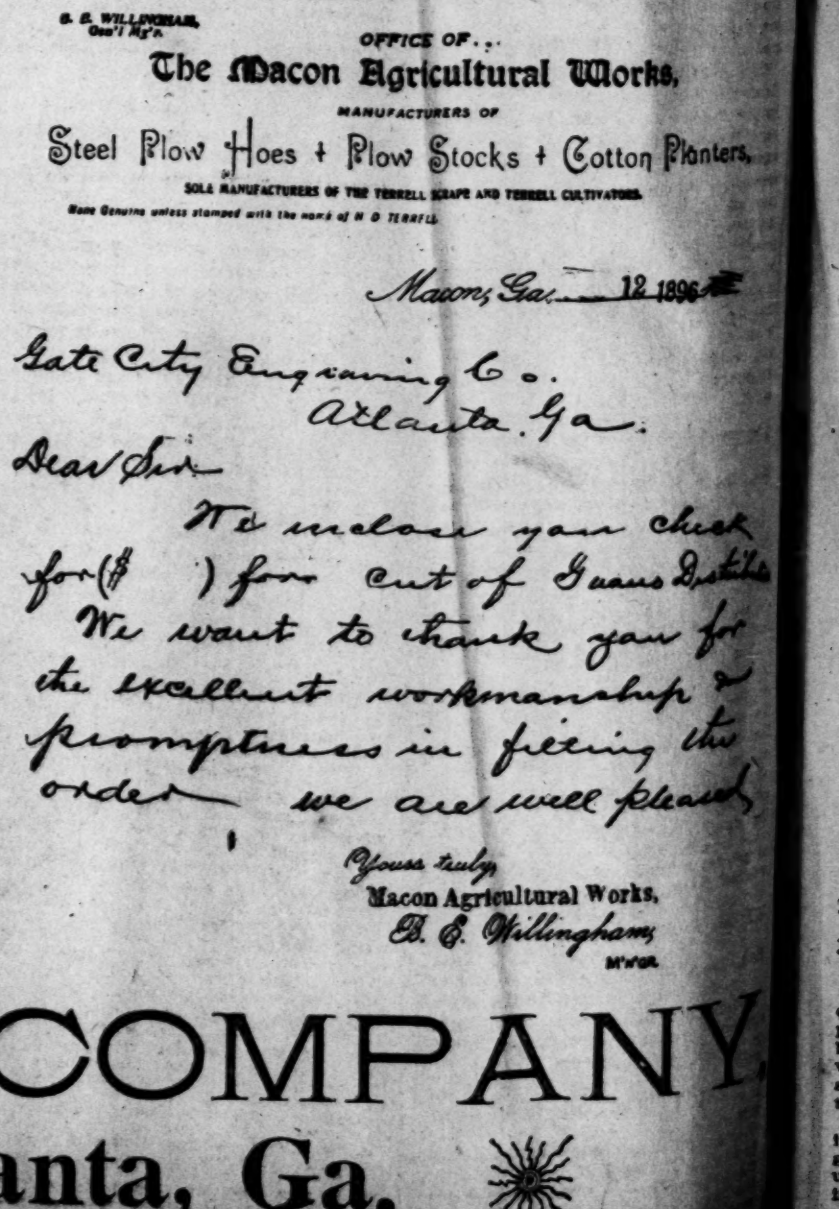 B. E. WILLINGHAM,
Gen'l Mg'r.
OFFICE OF...
The Macon Agricultural Works,
MANUFACTURERS OF
Steel Plow Hoes + Plow Stocks + Cotton Planters,
SOLE MANUFACTURERS OF THE TERRELL SCRAPE AND TERRELL CULTIVATORS.
None Genuine unless stamped with the name of H D TERRELL
Macon, Ga. 12 1896
Gate City Engraving Co.
Atlanta. Ga.
Dear Sir
We inclose you check
for ($ ) for cut of Guano
We want to thank you for
the excellent workmanship &
promptness in filling the
order we are well pleased,
Yours truly,
Macon Agricultural Works,
B. E. Willingham,
M'n'GR.
COMPANY,
anta, Ga.